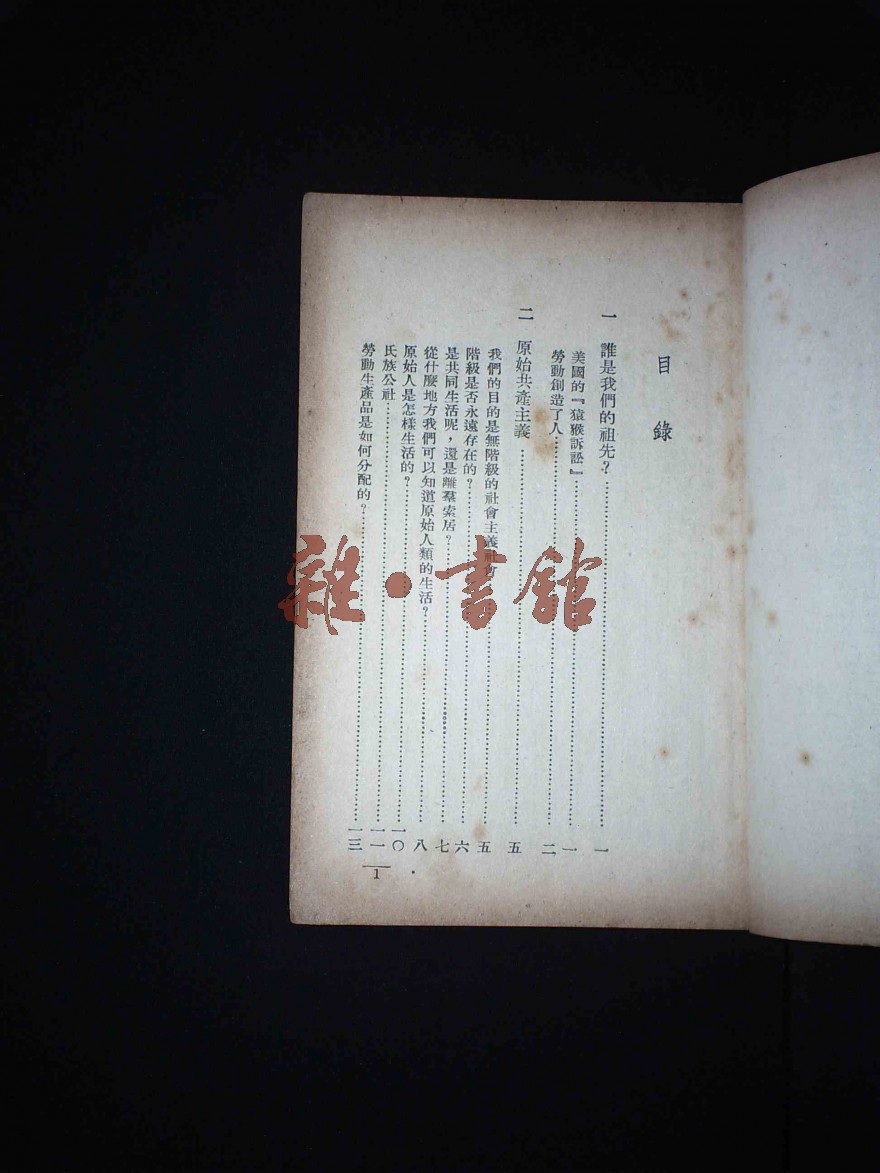 目錄
一 誰是我們的祖先？……一
美國的『猿猴訴訟』……一
勞動創造了人……二
二 原始共產主義……五
我們的目的是無階級的社會主義社會……五
階級是否永遠存在的？……六
是共同生活呢，還是離羣索居？……七
從什麼地方我們可以知道原始人類的生活？……八
原始人是怎樣生活的？……一〇
氏族公社……一一
勞動生產品是如何分配的？……一三
1
雜·書館